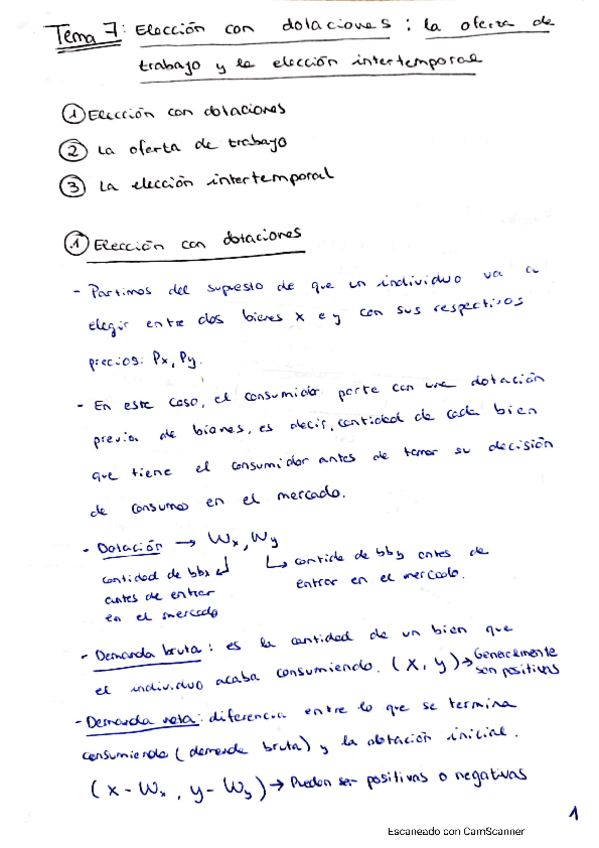 Tema 7: Elección con dotaciones : la oferta de
trabajo y la elección intertemporal
① Elección con dotaciones
② La oferta de trabajo
③ La elección intertemporal
① Elección con dotaciones
- Partimos del supuesto de que un individuo va a
elegir entre dos bienes x e y con sus respectivos
precios: Px, Py.
- En este caso, el consumidor parte con una dotación
previa de bienes, es decir, cantidad de cada bien
que tiene el consumidor antes de tomar su decisión
de consumo en el mercado.
- Dotación → Wx, Wy
cantidad de bbx ↲
antes de entrar
en el mercado
↳ contide de bby antes de
entrar en el mercado.
- Demanda bruta : es la cantidad de un bien que
el individuo acaba consumiendo. (x, y) → Generalmente
son positivas
- Demanda neta : diferencia entre lo que se termina
consumiendo (demanda bruta) y la dotación inicial.
(x - Wx , y - Wy) → Pueden ser positivas o negativas
1
Escaneado con CamScanner